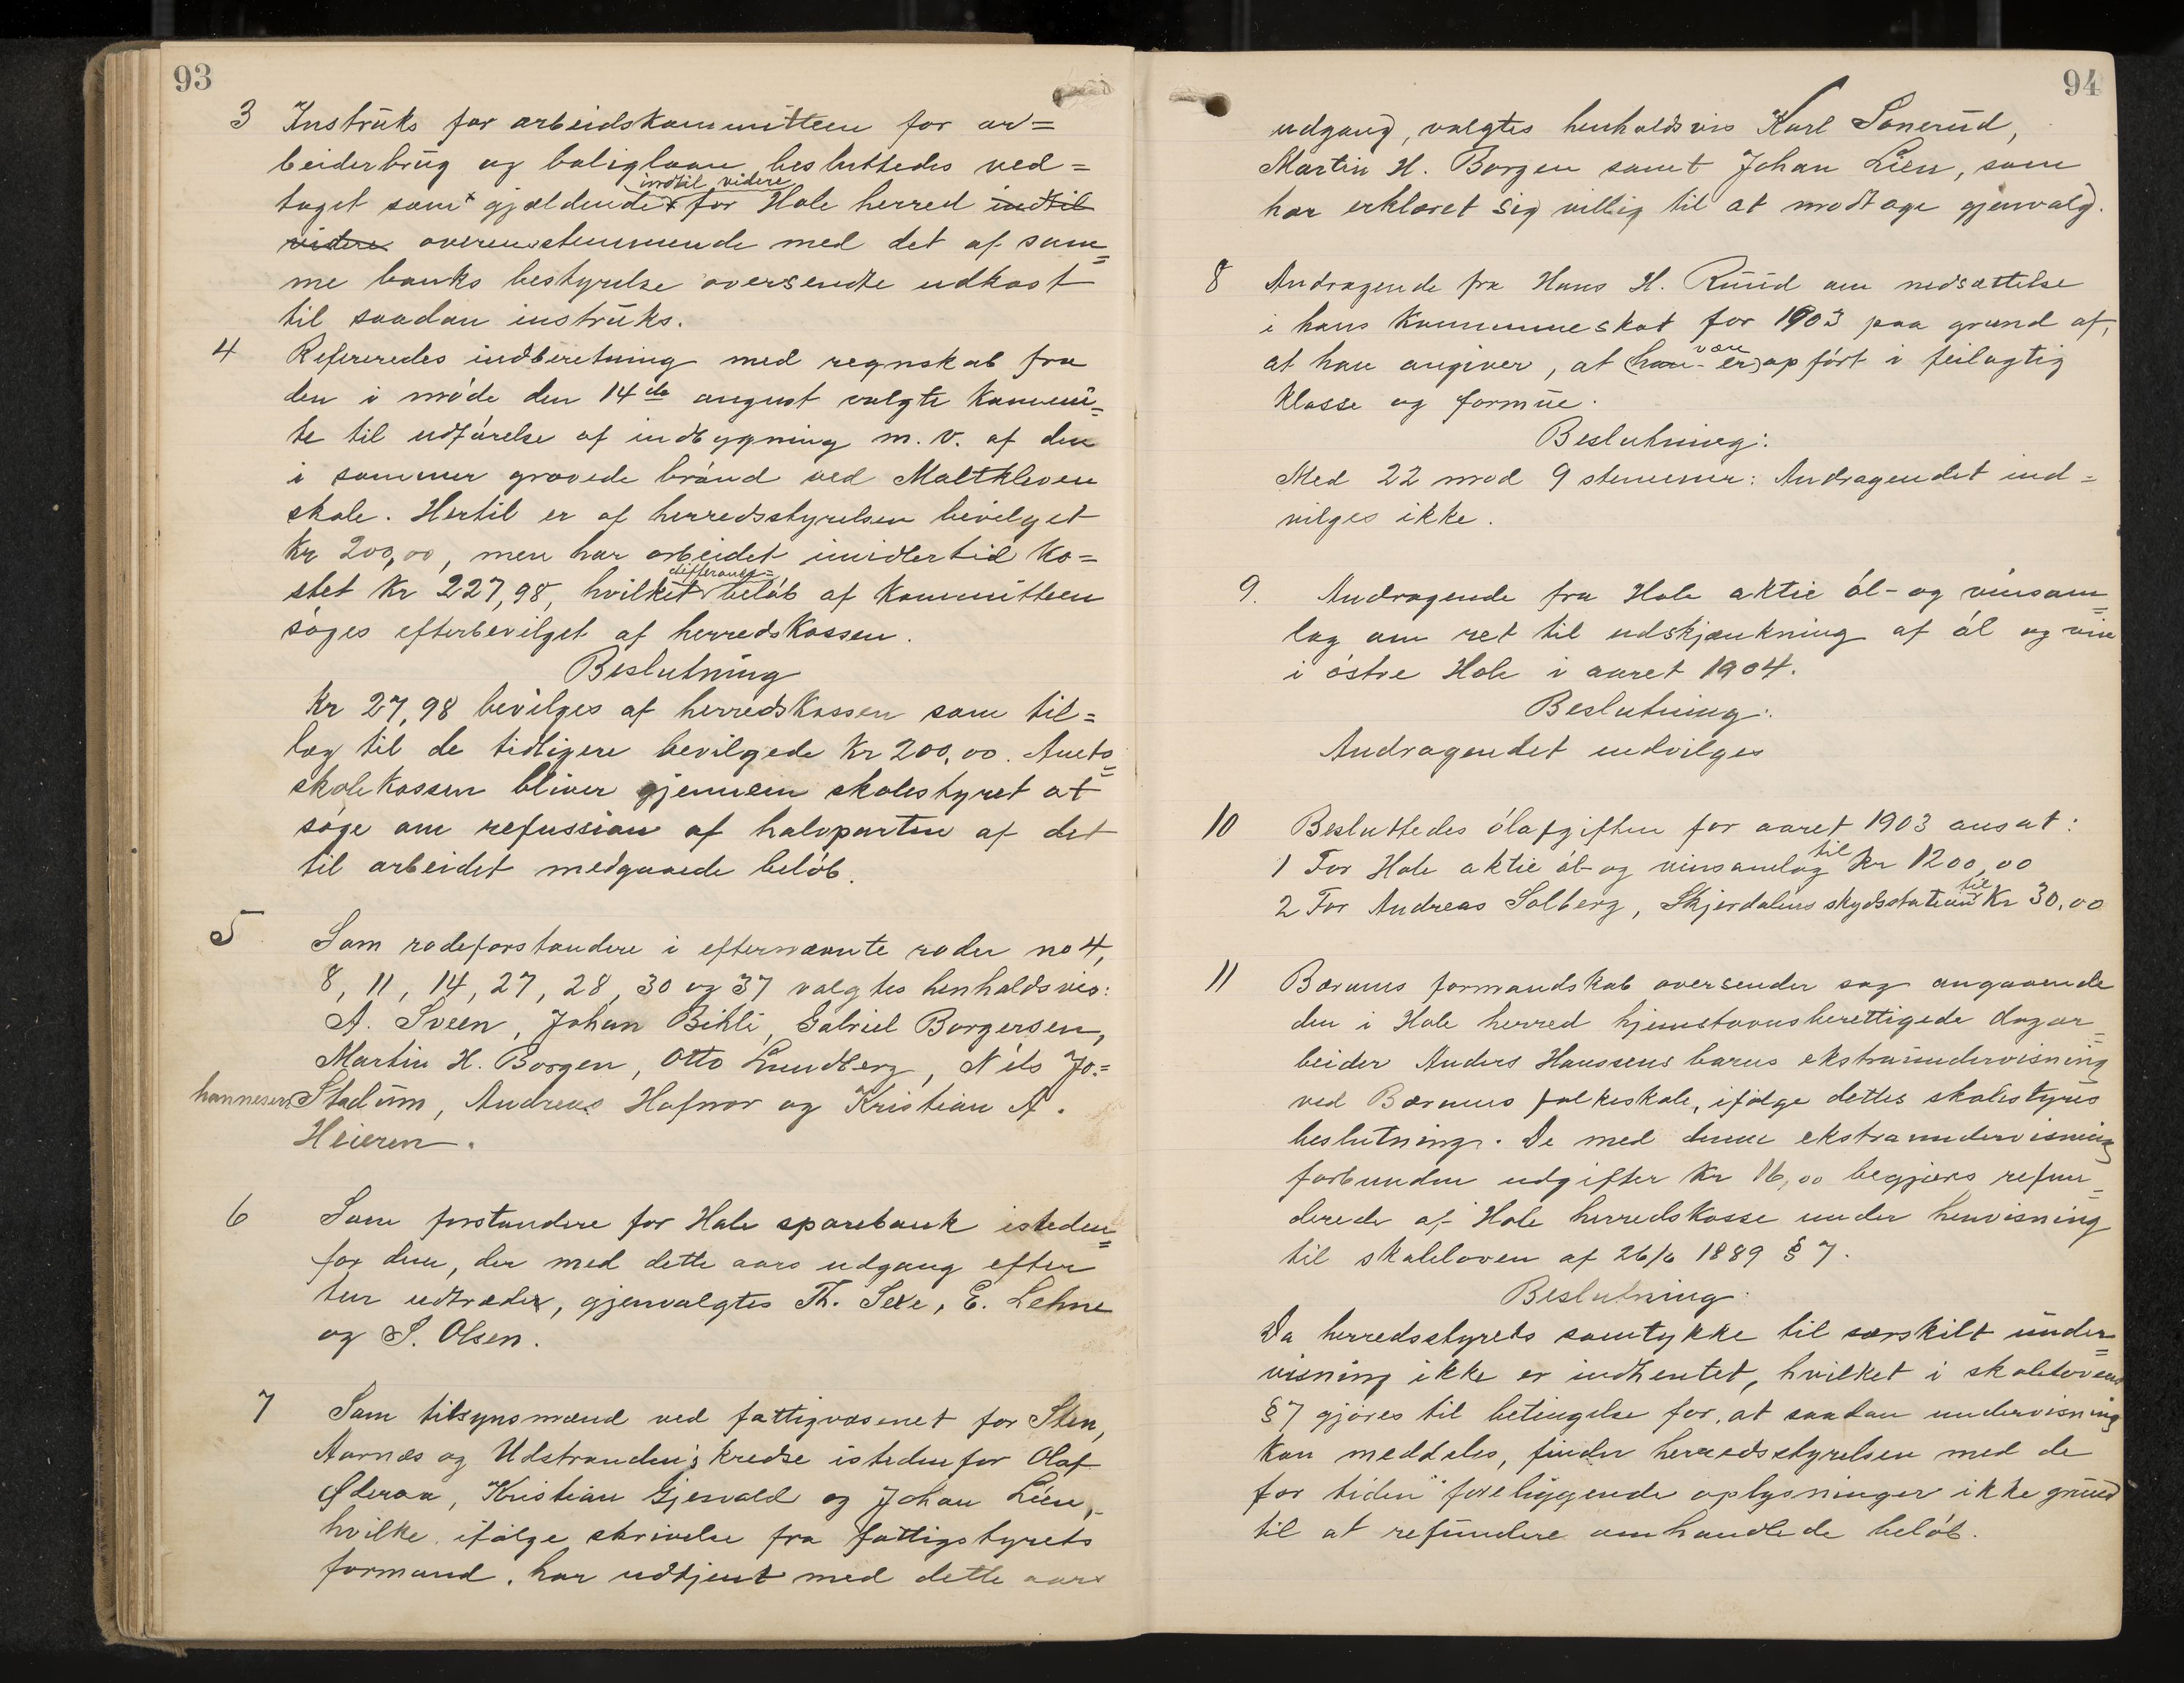 93
3 Instruks for arbeidskommitteen for ar=
beiderbrug og boliglaan besluttedes ved=
indtil videre
taget som gjældende for Hole herred indtil
videre overensstemmende med det af sam=
me banks bestyrelse oversendte udkast
til saadan instruks.
4 Refereredes indberetning med regnskab fra
den i möde den 14de august valgte kommi=
te til udförelse af indbygning m.v. af den
i sommer gravede brönd ved Maltkleven
skole. Hertil er af herredsstyrelsen bevilget
Kr 200,00, men har arbeidet imidlertid ko=
differanse=
stet Kr 227,98, hvilket belöb af kommitteen
söges efterbevilget af herredskassen.
Beslutning
Kr 27,98 bevilges af herredskassen som til=
læg til de tidligere bevilgede Kr 200,00. Amts=
skolekassen bliver gjennem skolestyret at
söge om refussion af halvparten af det
til arbeidet medgaaede belöb.
5 Som rodeforstandere i efternævnte roder no 4,
8, 11, 14, 27, 28, 30 og 37 valgtes henholdsvis:
A. Sveen, Johan Bihli, Gabriel Borgersen,
Martin H. Borgen, Otto Lundberg, Nils Jo=
hannesen Stadum, Andreas Hafnor og Kristian A.
Heieren.
6 Som forstandere for Hole sparebank isteden=
for dem, der med dette aars udgang efter
tur udtræder, gjenvalgtes Th. Sexe, E. Lehne
og S. Olsen.
7 Som tilsynsmænd ved fattigvæsenet for Sten,
Aarnæs og Udstrandens kredse istedenfor Olaf
Ølderaa, Kristian Gjesvald og Johan Lien,
hvilke ifölge skrivelse fra fattigstyrets
formand, har udtjent med dette aars
94
udgang, valgtes henholdsvis Karl Sonerud,
Martin H. Borgen samt Johan Lien, som
har erklæret sig villig til at modtage gjenvalg.
8 Andragende fra Hans H. Ruud om nedsættelse
i hans kommuneskat for 1903 paa grund af,
være
at han angiver, at (han er) opfört i feilagtig
klasse og formue.
Beslutning:
Med 22 mod 9 stemmer: Andragendet ind=
vilges ikke.
9. Andragende fra Hole aktie öl- og vinsam=
lag om ret til udskjænkning af öl og vin
i östre Hole i aaret 1904.
Beslutning:
Andragendet indvilges
10 Besluttedes ölafgiften for aaret 1903 ansat:
1 For Hole aktie öl- og vinsamlag til Kr 1200,00
2 For Andreas Solberg, Skjerdalens skydsstation til Kr 30,00
11 Bærums formandskab oversender sag angaaende
den i Hole herred hjemstavnsberettigede dagar=
beider Anders Hanssens barns ekstraundervisning
ved Bærums folkeskole, ifölge dettes skolestyres
beslutning. De med denne ekstraundervisning
forbundne udgifter Kr 16,00 begjæres refun=
derede af Hole herredskasse under henvisning
til skoleloven af 26/6 1889 § 7.
Beslutning:
Da herredsstyrets samtykke til særskilt under=
visning ikke er indhentet, hvilket i skolelovens
§ 7 gjöres til betingelse for, at saadan undervisning
kan meddeles, finder herredsstyrelsen med de
for tiden foreliggende oplysninger ikke grund
til at refundere omhandlede belöb.